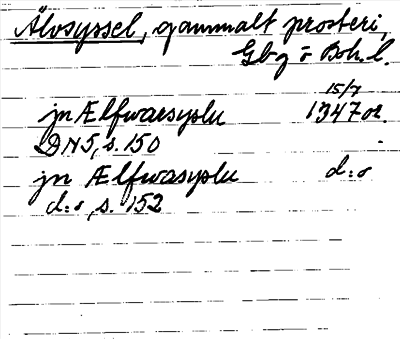 Älvsyssel, gammalt prosteri,
Gbg o Boh. l.
15/7
jn Ælfwarsyslu 1347 or.
DN 5, s. 150
jn Ælfwasyslu d:o
d:o, s. 152